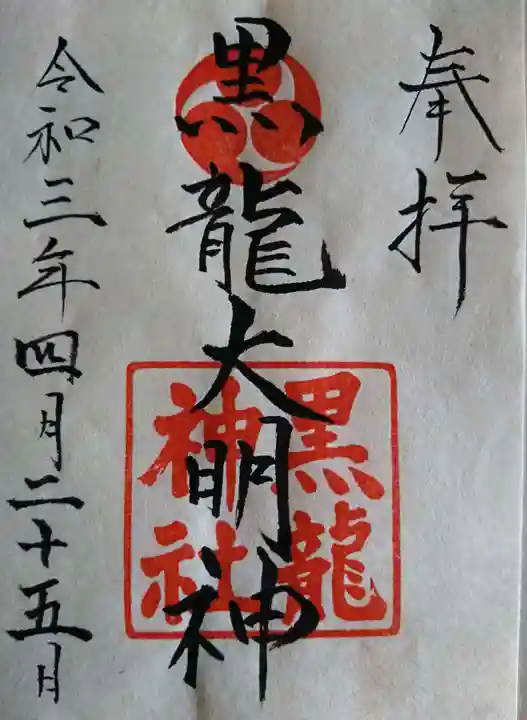 奉拝
黒龍大明神
黒龍
神社
令和三年四月二十五月